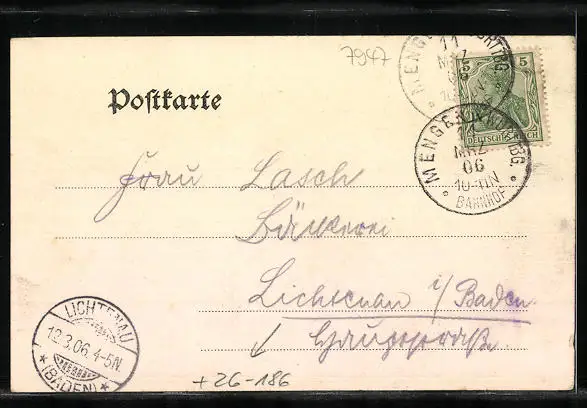 7947
MENGEN (WÜRTTBG.
11
MRZ
DEUTSCHES REICH
5
5
Postkarte
MENGEN (WÜRTTBG.
11
MRZ
06
10-11N
BAHNHOF
Frau Lasch
Bäckerei
Lichtenau i/Baden
Hauptstraße.
LICHTENAU
12.3.06.4-5N.
(BADEN)
+26-186